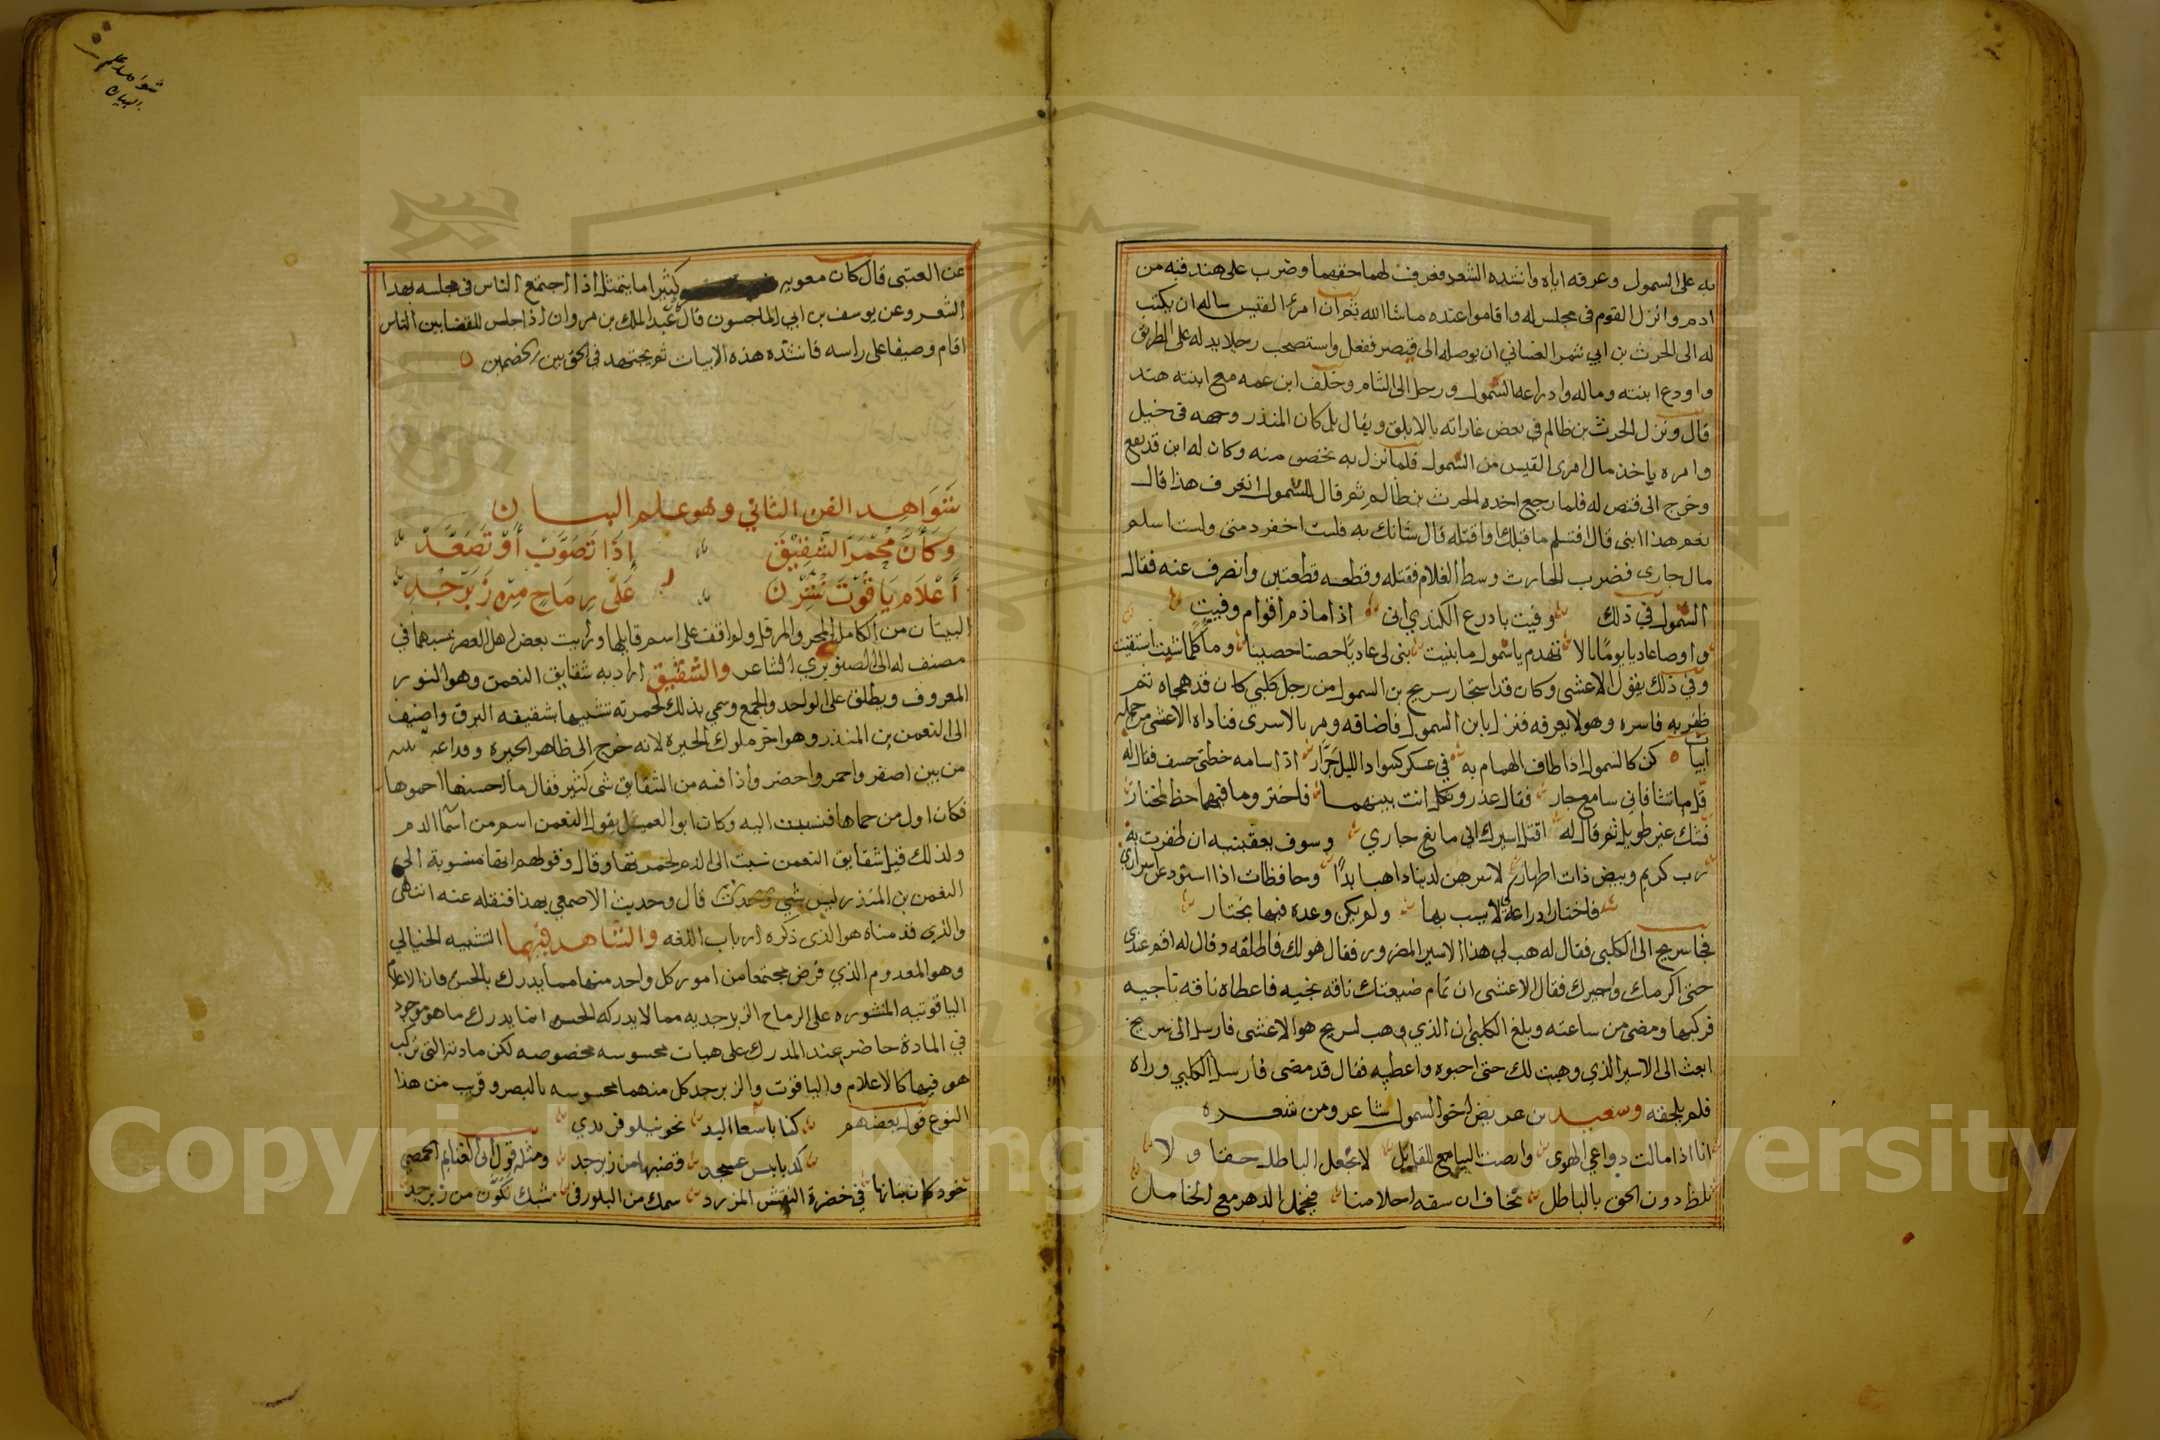 به على السمول وعرفه اياه وانشده الشعر فعرف لهما حقهما وضرب على هند قبه من
ادم وانزل القوم في مجلس له واقاموا عنده ماشاالله ثم ان امرء القيس ساله ان يكتب
له الى الحرث بن ابي شمر الغساني ان يوصله الى قيصر ففعل واستصحب رجلا يدله على الطريق
واودع ابنته وماله وادراعه السمول ورحل الى الشام وخلف ابن عمه مع ابنته هند
قال ونزل الحرث بن ظالم في بعض غاراته بالابلق ويقال بل كان المنذر وجهه في خيل
وامره ياخذ مال امرى القيس من السمول فلما نزل به تحصن منه وكان له ابن قد يفع
وخرج الى قنص له فلما رجع اخذه الحرث بن ظالم ثم قال للسمول اتعرف هذا قال
نعم هذا ابني قال افتسلم ما قبلك ام اقتله قال شانك به فلست اخفر ذمتي ولست اسلم
مال جاري فضرب الحارث وسط الغلام فقتله وقطعه قطعتين وانصرف عنه فقال
السمول في ذلك وفيت بادرع الكندي اني اذا ما ذم اقوام وفيت
واوصا عاديا يوما بالا تهدم ياسمول ما بنيت بنى لي عاديا حصنا حصينا وما كلما شيت استقيت
وفي ذلك يقول الاعشى وكان قد استجار بسريح بن السمول من رجل كلبي كان قد هجاه ثم
ظفر به فاسره وهو لا يعرفه فنزل بابن السمول فاضافه ومر بالاسرى فناداه الاعشى من جملة
ابيات كن كالسمول اذ طاف الهمام به في عسكر كسواد الليل جرار اذ سامه خطتي خسف فقال له
قل ما تشا فاني سامع حار فقال غدر وثكل انت بينهما فاختر وما فيهما حظ لمختار
فشك غير طويل ثم قال له اقتل اسيرك اني مانع جاري وسوف يعقبنيه ان ظفرت به
رب كريم وبيض ذات اطهار لاسرهن لدينا ذاهب ابدا وحافظات اذا استودعن اسراري
فاختار ادراعه لا يسب بها ولم يكن وعده فيها بختار
فجا سريح الى الكلبي فقال له هب لي هذا الاسير المضرور فقال هو لك فاطلقه وقال له اقم عندي
حتى اكرمك واحبوك فقال الاعشى ان تمام ضيعتك ناقه نجيه فاعطاه ناقه ناجيه
فركبها ومضى من ساعته وبلغ الكلبي ان الذي وهب لسريح هو الاعشى فارسل الى سريح
ابعث الى الاسير الذي وهبت لك حتى احبوه واعطيه فقال قد مضى فارسل الكلبي وراه
فلم يلحقه وسعيد بن عريض اخو السمول شاعر ومن شعره
انا اذا مالت دواعي الهوى وانصت السامع للقايل لا نجعل الباطل حقا ولا
نلظ دون الحق بالباطل نخاف ان تسفه احلامنا فنخمل الدهر مع الخامل
شواهد علم
البيان
عن العتبى قال كان معويه كثيرا ما يتمثل اذا اجتمع الناس في مجلسه بهذا
الشعر وعن يوسف بن ابي الماجسون قال عبد الملك بن مروان اذا جلس للقضا بين الناس
اقام وصيفا على راسه فانشده هذه الابيات ثم يجتهد في الحق بين الخصمين
شواهد الفن الثاني وهو علم البيان
وكأن محمر الشقيق اذا تصوب أو تصعد
أعلام ياقوت نشرن على رماح من زبرجد
البيتان من الكامل المجرو المرفل ولم اقف على اسم قايلها ورايت بعض اهل العصر نسبهما في
مصنف له الى الصنوبري الشاعر والشقيق اراد به شقايق النعمن وهو النور
المعروف ويطلق على الواحد والجمع وسمي بذلك لحمرته تشبيها بشقيقه البرق واضيف
الى النعمن بن المنذر وهو اخر ملوك الحيره لانه خرج الى ظاهر الحيرة وقد اعتم نبته
من بين اصفر واحمر واخضر واذا فيه من الشقايق شي كثير فقال ما احسنها احموها
فكان اول من حماها فنسبت اليه وكان ابو العميثل يقول النعمن اسم من اسما الدم
ولذلك قيل شقايق النعمن نسبت الى الدم لحمرتها وقال وقولهم انها منسوبة الى
النعمن بن المنذر ليس بشي وحدثت قال وحديث الاصمعي بهذا فنقله عنه انتهى
والذي قدمناه هو الذي ذكره ارباب اللغه والشاهد فيهما التشبيه الخيالي
وهو المعدوم الذي فرض مجتمعا من امور كل واحد منها مما يدرك بالحس فان الاعلام
الياقوتيه المنشوره على الرماح الزبرجديه مما لا يدركه الحس انما يدرك ما هو موجود
في المادة حاضر عند المدرك على هيات محسوسه مخصوصه لكن مادته التي تركب
هو فيها كالاعلام والياقوت والزبرجد كل منهما محسوسه بالبصر وقريب من هذا
النوع قول بعضهم كلنا باسط اليد نحو نيلوفر ندي
كدبابيس عسجد قضبها من زبرجد ومثله قول ابي الغنايم الحمصي
خود كان بنانها في خضرة النقش المزرد سمك من البلور في شبك تكون من زبرجد
Copyright © King Saud University